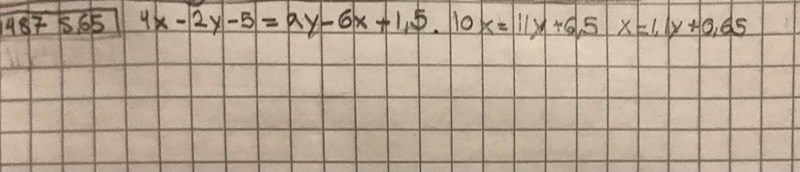 1487 565 4x-2y-5=9y-6x+1,5. 10x=11y+6,5 x=1,1y+0,65